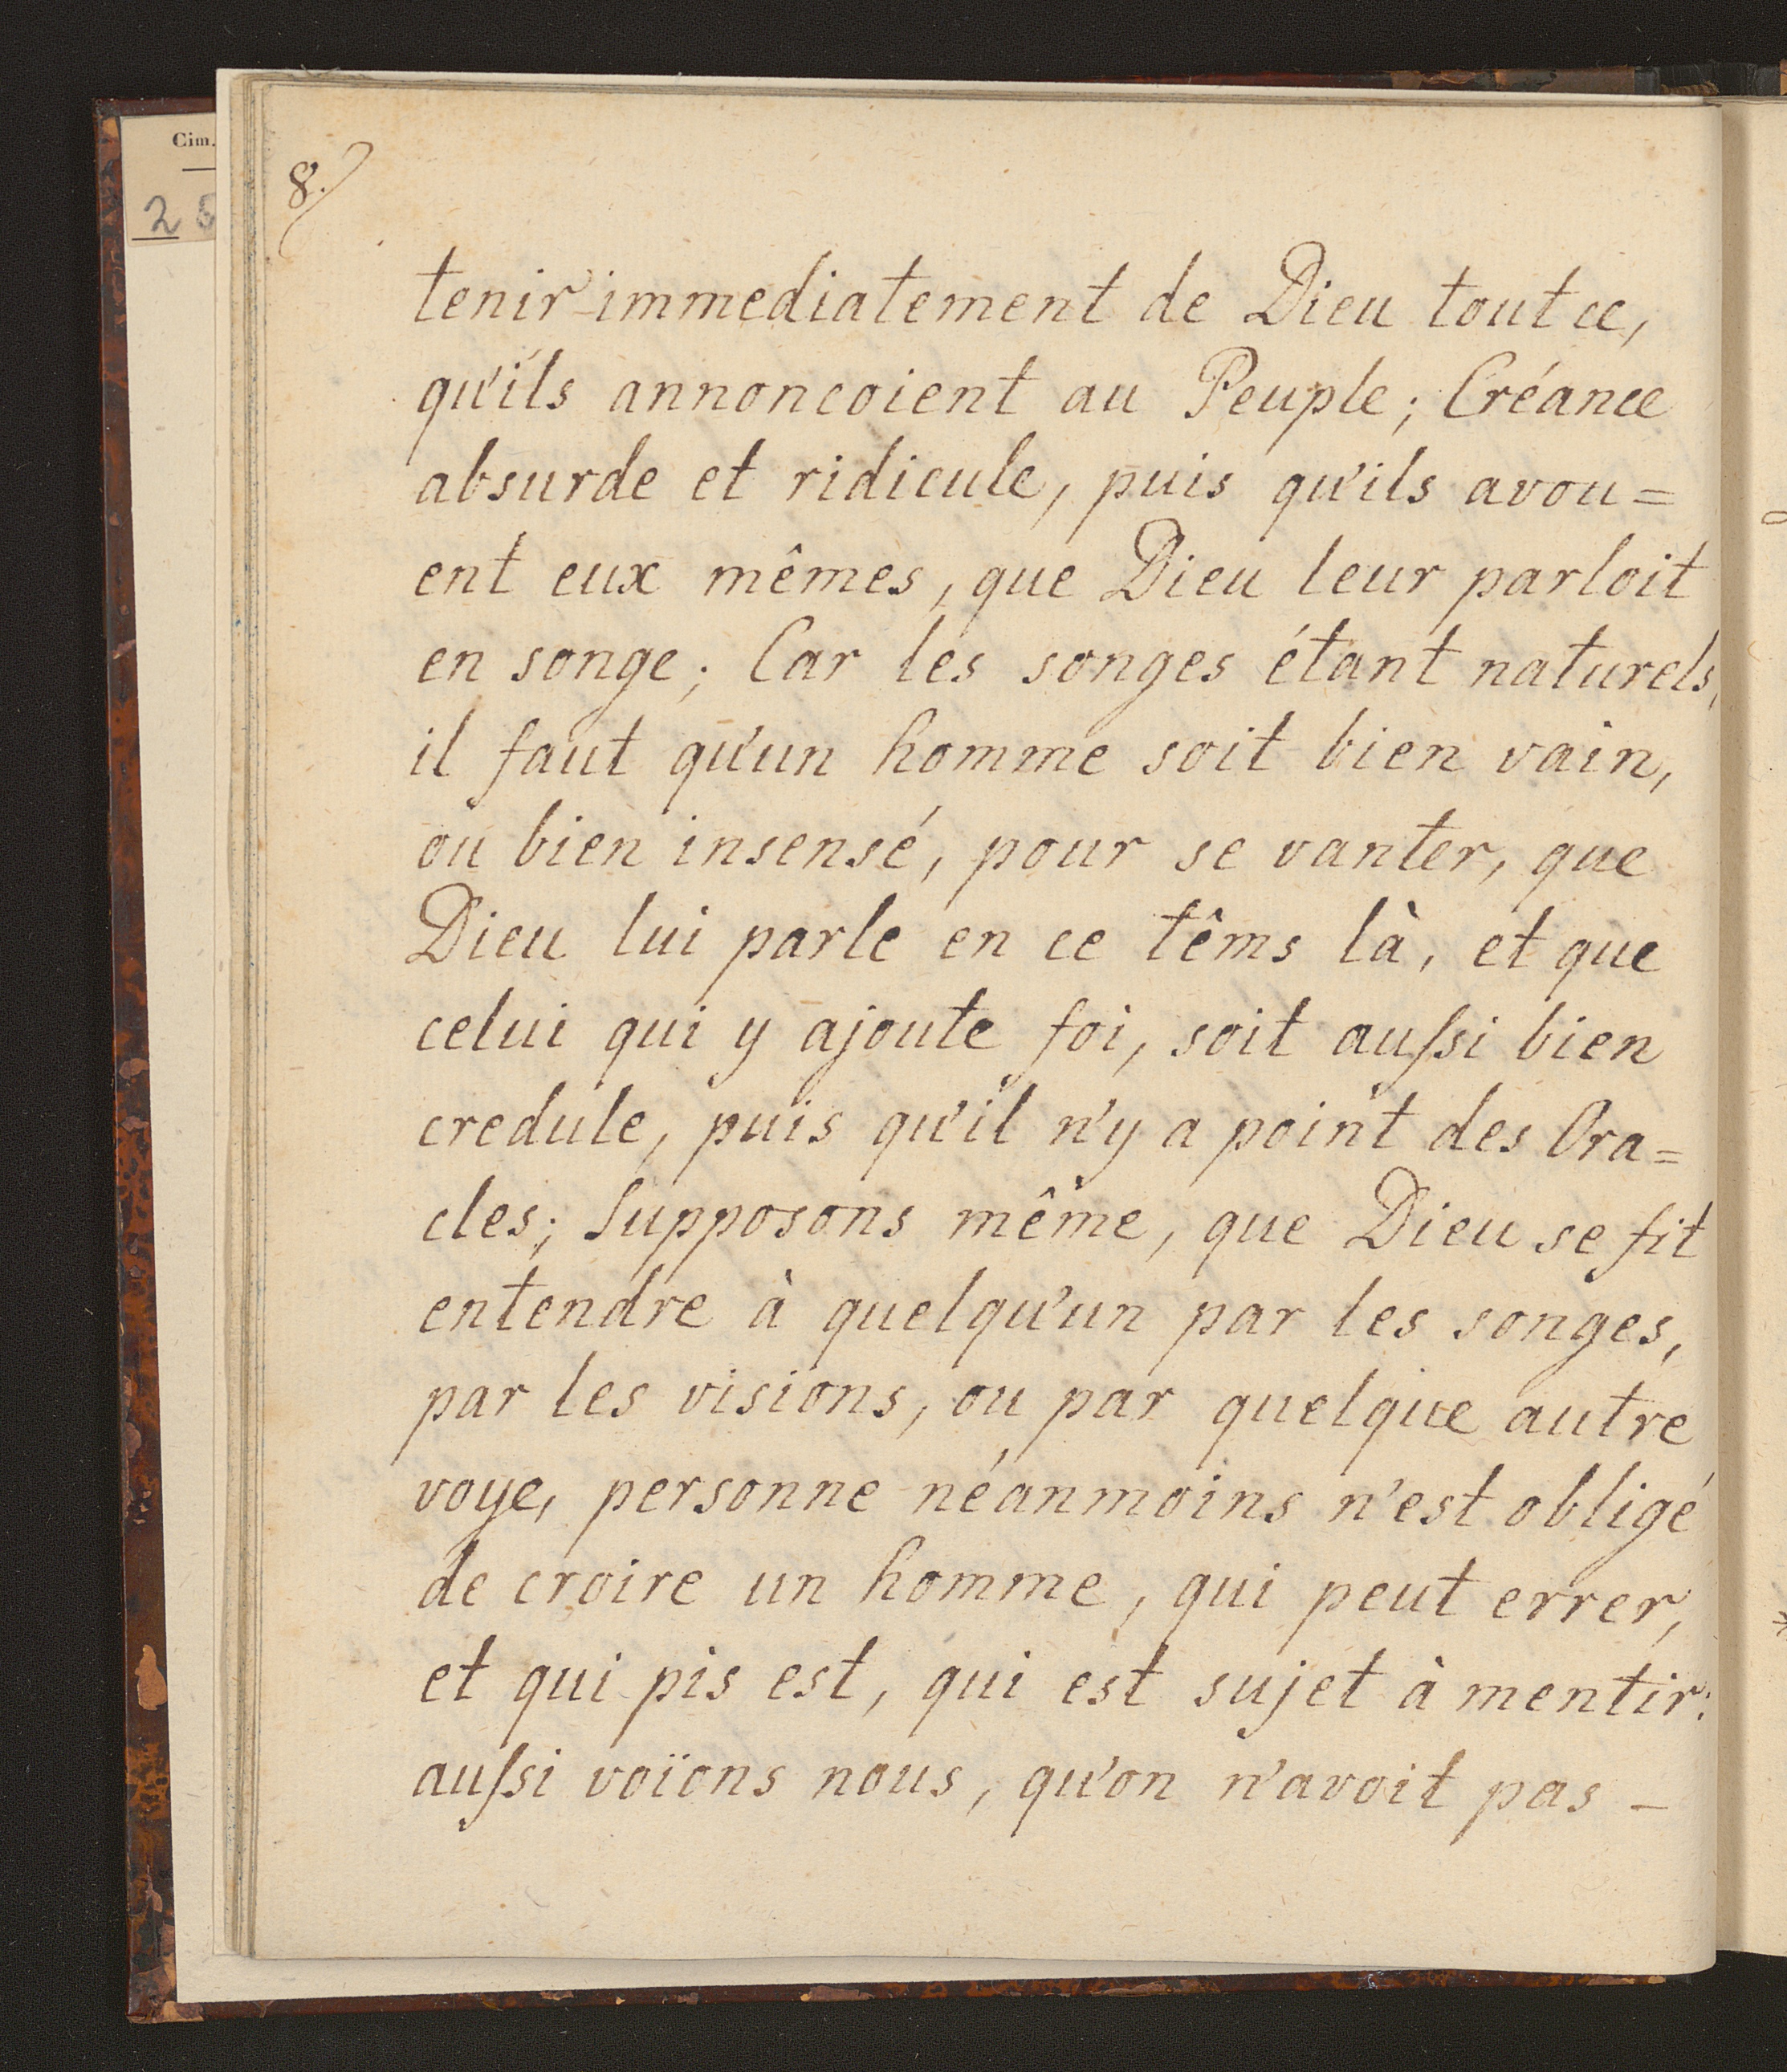 Cim.
2
8.
tenir immediatement de Dieu tout ce,
qu'ils annoncoient au Peuple; Créance
absurde et ridicule, puis qu'ils avou=
ent eux mêmes, que Dieu leur parloit
en songe; Car les songes étant naturels,
il faut qu'un homme soit bien vain,
ou bien insensé, pour se vanter, que
Dieu lui parle en ce têms là, et que
celui qui y ajoute foi, soit auſsi bien
credule, puis qu'il n'y a point des Ora=
cles; Supposons même, que Dieu se fit
entendre à quelqu'un par les songes,
par les visions, ou par quelque autre
voye, personne néanmoins n'est obligé
de croire un homme, qui peut errer,
et qui pis est, qui est sujet à mentir:
auſsi voïons nous, qu'on n'avoit pas –